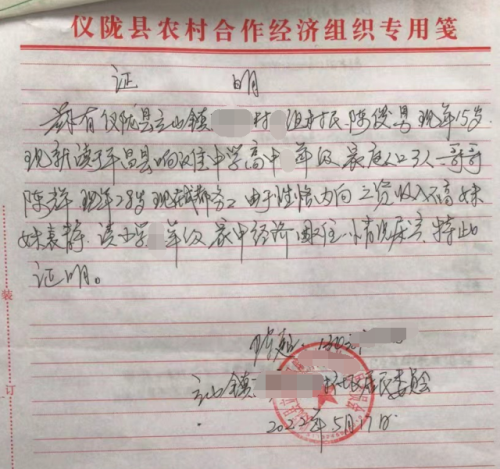 仪陇县农村合作经济组织专用笺
证 明
兹有仪陇县立山镇 村 组村民陈俊男现年15岁
现就读于平昌县响滩中学高中 年级 家庭人口3人 哥哥
陈 现年28岁现在成都务工 由于性情内向 工资收入不高 妹
妹 读小学 年级 家中经济困难 情况属实 特此
证明。
立山镇 村 居民委员会
2022年5月17日
装
订